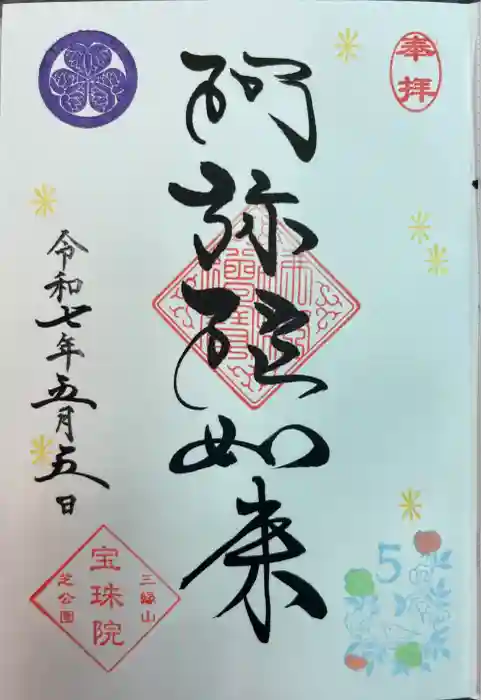 奉拝
阿弥陀如来
令和七年五月五日
三縁山
宝珠院
芝公園
5